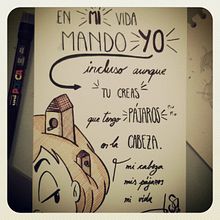 EN MI VIDA
MANDO YO
incluso aunque
TU CREAS
que tengo PÁJAROS
en la
CABEZA.
mi cabeza
mis pájaros
mi vida